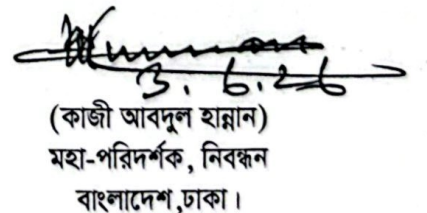 3. 6. 26
(কাজী আবদুল হান্নান)
মহা-পরিদর্শক, নিবন্ধন
বাংলাদেশ,ঢাকা।